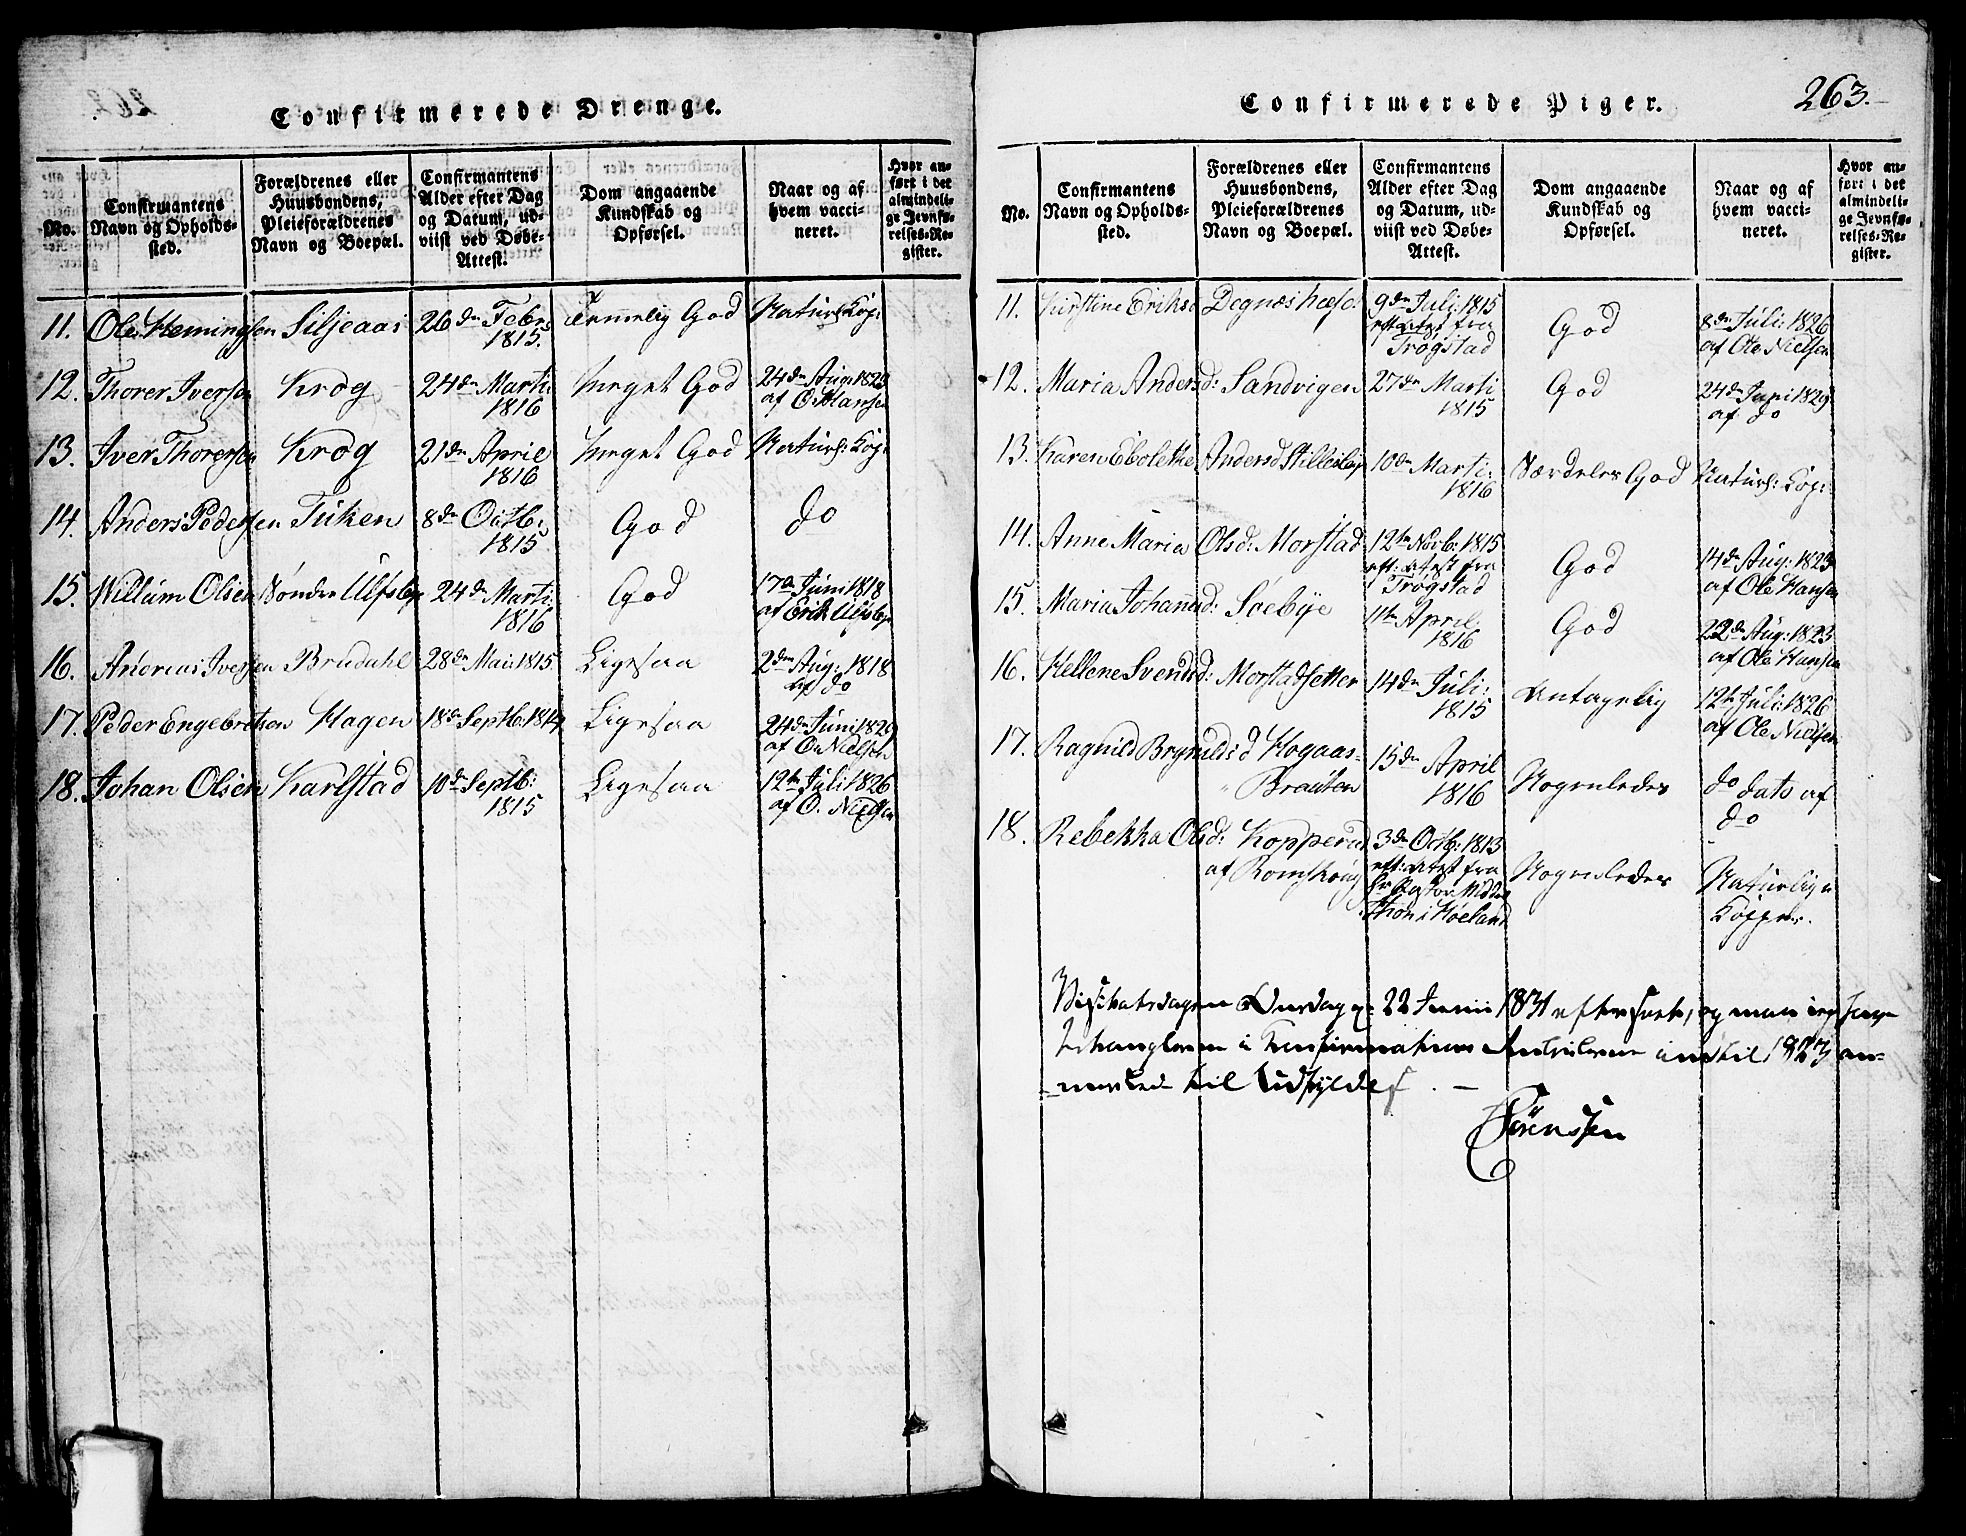 Confirmerede Drenge.
No.
Confirmantens Navn og Opholdssted.
Forældrenes eller Huusbondens, Pleieforældrenes Navn og Boepæl.
Confirmantens Alder efter Dag og Datum, udviist ved Døbe-Attest.
Dom angaaende Kundskab og Opførsel.
Naar og af hvem vaccineret.
Hvor anført i det almindelige Jevnførelses-Register.
11. Ole Hemingsen Siljeaas 26de Febr. 1815. Temmelig God Naturl: Kop:
12. Thorer Iversen Krog 24de Marti: 1816 Meget God 24de Aug: 1823 af O. Hansen
13. Iver Thorersen Krog 21de April 1816 Meget God Naturl: Kop:
14. Anders Pedersen Tuken 8de Octb: 1815 God do
15. Willum Olsen Søndre Ulfsbye 24de Marti: 1816 God 17de Juni 1818 af Erik Ulfsbye
16. Andreas Iversen Brudahl 28de Mai: 1815 Ligesaa 2den Aug: 1818 af do
17. Peder Engebretsen Hagen 18de Septb: 1814 Ligesaa 24de Juni 1829 af O. Nielsen
18. Johan Olsen Karlstad 10de Septb: 1815 Ligesaa 12te Juli 1826 af O. Nielsen
Confirmerede Piger.
263.
No.
Confirmantens Navn og Opholdssted.
Forældrenes eller Huusbondens, Pleieforældrenes Navn og Boepæl.
Confirmantens Alder efter Dag og Datum, udviist ved Døbe-Attest.
Dom angaaende Kundskab og Opførsel.
Naar og af hvem vaccineret.
Hvor anført i det almindelige Jevnførelses-Register.
11. Kirstine Eriksd 9de Juli: 1815 eft: Atest fra Trøgstad God 8de Juli: 1826 af Ole Nielsen
12. Maria Andersd: Sandvigen 27de Marti 1815 God 24de Juni 1829 af do
13. Karen Bolethe Andersd Stillesbye 10de Marti: 1816 Særdeles God Naturl: Kop:
14. Anne Maria Olsd: Morstad 12te Novb: 1815 eft: Atest fra Trøgstad God 14de Aug: 1823 af Ole Hansen
15. Maria Johannesd: Soebye 11te April: 1816 God 22de Aug: 1823 af Ole Hansen
16. Hellene Svendsd: Morstadsetter 14de Juli: 1815 Antagelig 12te Juli: 1826 af Ole Nielsen
17. Ragnild Brynildsd Hogaas-Braaten 15de April 1816 Nogenledes do dato af do
18. Rebekka Olsd: Kopperud af Romskoug 3de Octb: 1813 eft: Atest fra Hr Pastor i Høeland Nogenledes Naturlige Kopper.
Visitatsdagen Onsdag 22 Junii 1831 efterseet, og man
i Confirmations indtil 1823 an-
merked til Udfyldes. –
Sørenssen